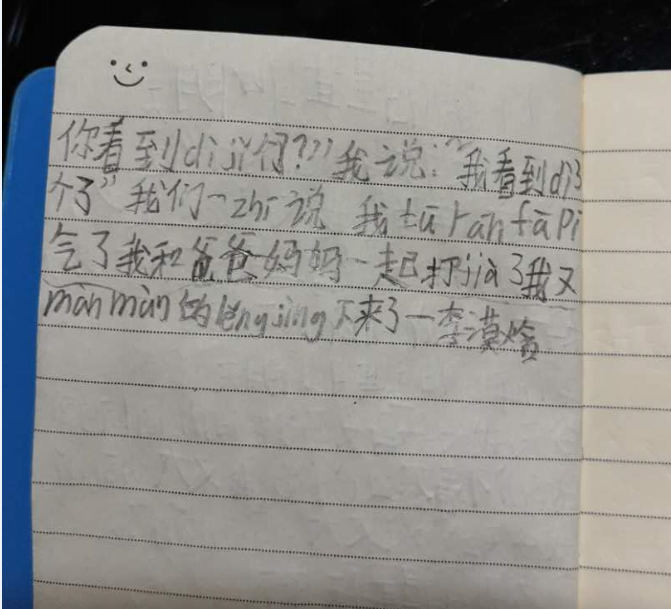 你看到dìjǐ行?”我说:“我看到dì3
个了”我们一zhí说 我tū rán fā pí
气了我和爸爸妈妈一起打jià了我又
màn màn的lěngjìng下来了一李漠